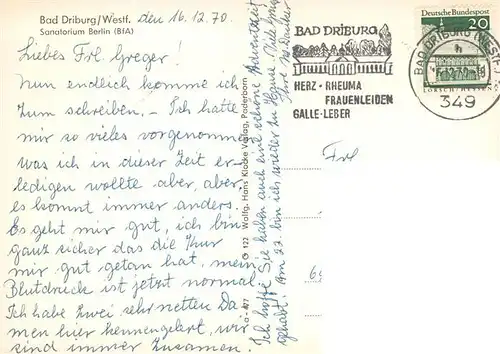 Bad Driburg/Westf. den 16.12.70.
Sanatorium Berlin (BfA)
Liebes Frl Greger!
Nun endlich komme ich
zum schreiben, - Ich hatte
mir so vieles vorgenommen
was ich in dieser Zeit er-
ledigen wollte aber, aber
es kommt immer anders.
Es geht mir gut, ich bin
ganz sicher das die Kur
mir gut getan hat, mein
Blutdruck ist jetzt normal
Ich habe zwei sehr netten Da
men hier kennengelernt, wir
sind immer zusammen.
Ich hoffe Sie haben auch eine schöne Adventszeit
gehabt. Am 22. bin ich wieder zu Hause.
Wolfg. Hans Klocke Verlag, Paderborn
BAD DRIBURG
HERZ · RHEUMA
FRAUENLEIDEN
GALLE · LEBER
Deutsche Bundespost
20
LORSCH/HESSEN
BAD DRIBURG (WESTF)
h
349
Frl